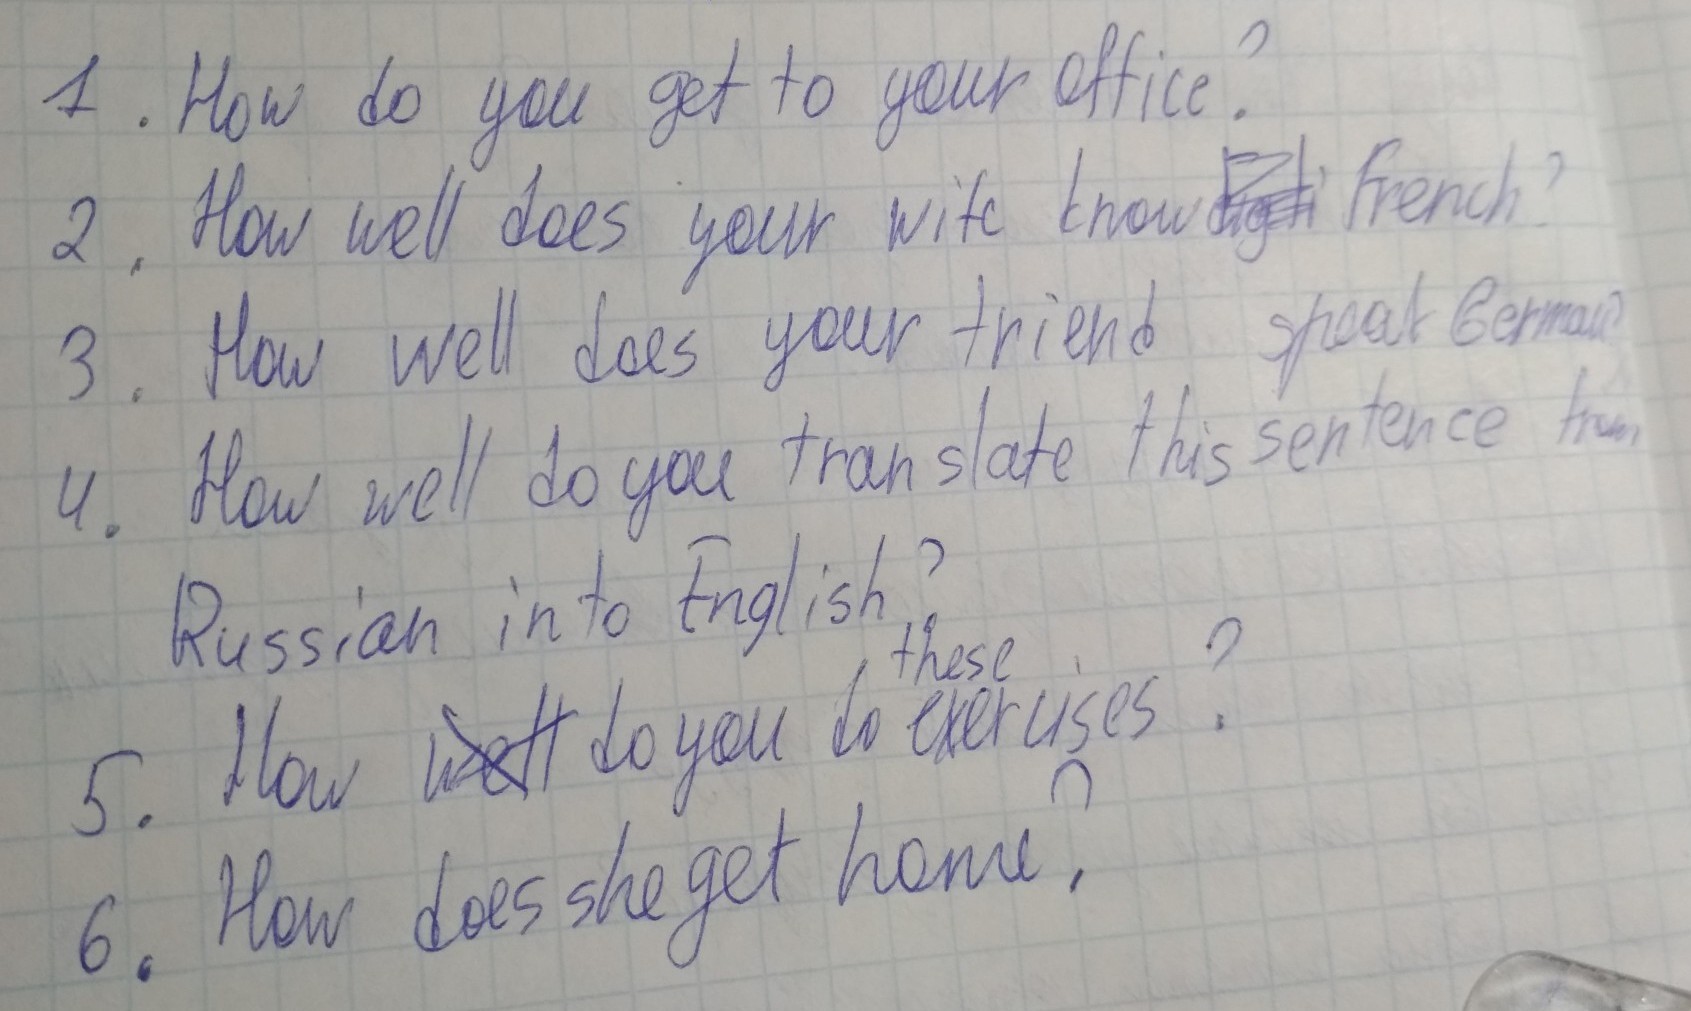 1. How do you get to your office?
2. How well does your wife know French?
3. How well does your friend speak German?
4. How well do you translate this sentence from
Russian into English?
5. How do you do these exercises?
6. How does she get home?